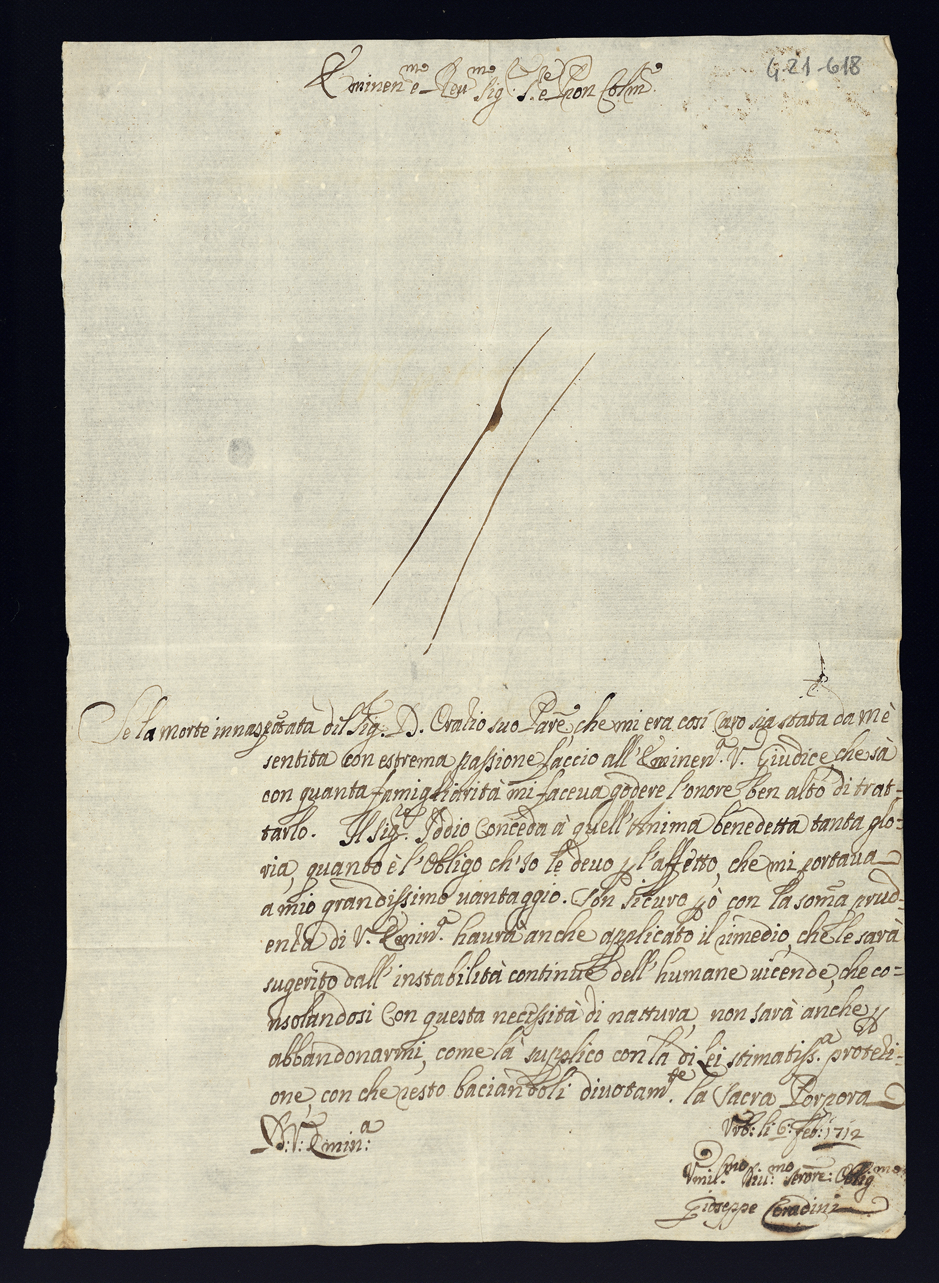 G 21-618
Eminen.mo e Reu.mo Sig.r S.re e Pron Col.mo
Se la morte innaspettata dil Sig.r D. Oratio suo Pa͠re che mi era così caro sia stata da mè
sentita con estrema passione faccio all'Eminen.a V. Giudice, che sà
con quanta famigliarità mi faceva godere l'onore ben alto di trat-
tarlo. Il Sig.r Iddio conceda à quell'Anima benedetta tanta glo-
ria, quanto è l'obligo ch'Io le devo p l'affetto, che mi portava
a mio grandissimo vantaggio. Son sicuro p̱ò con la som͠a prud-
enta di V. Emin.a haurà anche applicato il rimedio, che le sarà
sugerito dall'instabilità continue dell'humane vicende, che co=
nsolandosi con questa necissità di nattura, non sarà anche p
abbandonarmi, come la supplico con la di lei stimatiss.a proteti-
one, con che resto bacian͠doli divotam.te la Sacra Porpora
D: V: Emin:a
Urb: li 6: Feb: 1712
Vmil.mo Diu:mo Serure: Oblig.mo
Gioseppe Ceradini